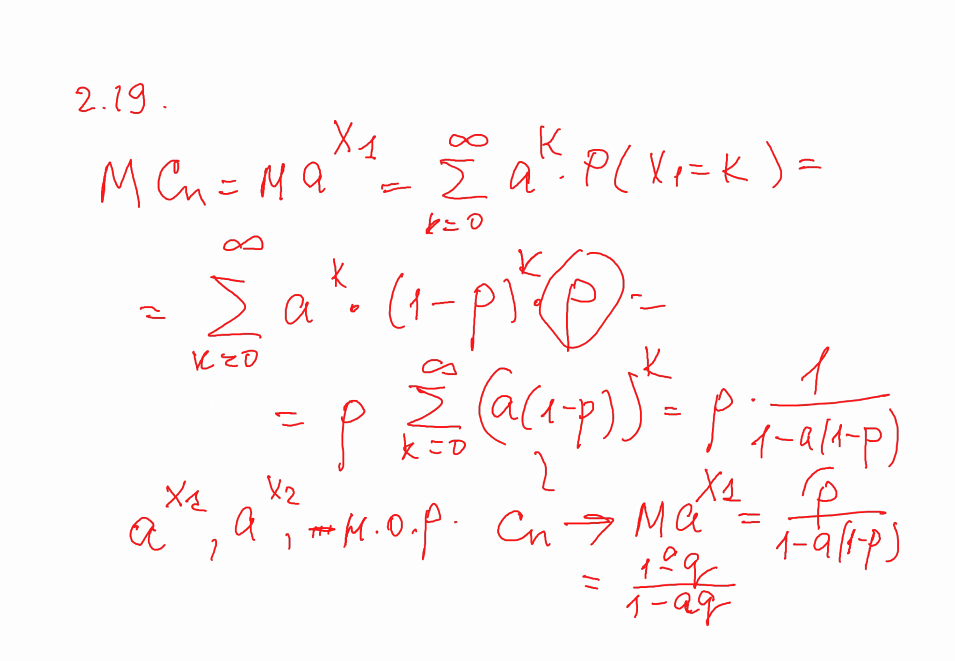 2.19.
M Cn = M a^{X1} = \sum_{k=0}^{∞} a^k · P(X1 = k) =
= \sum_{k=0}^{∞} a^k · (1-p)^k · p =
= p \sum_{k=0}^{∞} (a(1-p))^k = p · \frac{1}{1-a(1-p)}
a^{X1}, a^{X2}, - н.о.р. Cn → M a^{X1} = \frac{p}{1-a(1-p)}
= \frac{1-q}{1-aq}